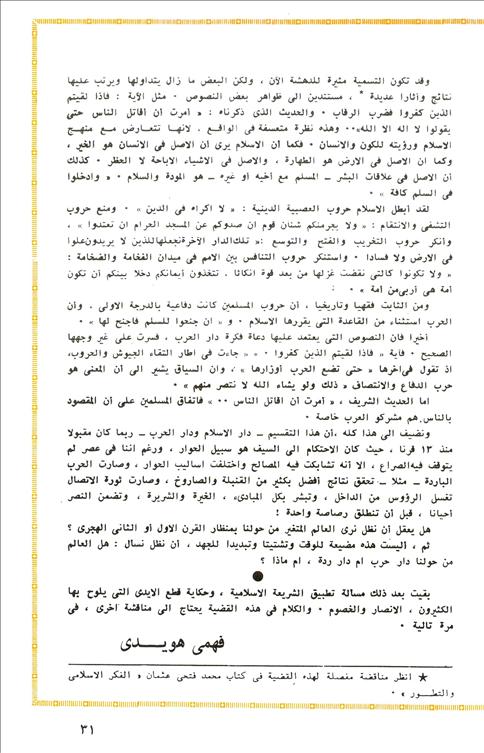 وقد تكون التسمية مثيرة للدهشة الآن ، ولكن البعض ما زال يتداولها ويرتب عليها
نتائج وآثارا عديدة * ، مستندين الى ظواهر بعض النصوص ٠ مثل الآية : فاذا لقيتم
الذين كفروا فضرب الرقاب ٠ والحديث الذى ذكرناه : « أمرت أن أقاتل الناس حتى
يقولوا لا اله الا الله»٠٠ وهذه نظرة متعسفة فى الواقع ، لانها تتعارض مع منهج
الاسلام ورؤيته للكون والانسان ٠ فكما ان الاسلام يرى أن الاصل فى الانسان هو الخير ،
وكما ان الاصل فى الارض هو الطهارة ، والاصل فى الاشياء الاباحة لا الحظر ٠ كذلك
أن الاصل فى علاقات البشر ــ المسلم مع أخيه أو غيره ــ هو المودة والسلام ٠ « وادخلوا
فى السلم كافة » ٠
لقد أبطل الاسلام حروب العصبية الدينية : « لا اكراه فى الدين » ٠ ومنع حروب
التشفى والانتقام : « ولا يجرمنكم شنآن قوم ان صدوكم عن المسجد الحرام ان تعتدوا » ،
وأنكر حروب التخريب والفتح والتوسع :« تلك الدار الآخرة نجعلها للذين لا يريدون علوا
فى الارض ولا فسادا ٠ واستنكر حروب التنافس بين الامم فى ميدان الفخامة والضخامة :
« ولا تكونوا كالتى نقضت غزلها من بعد قوة انكاثا ٠ تتخذون أيمانكم دخلا بينكم أن تكون
أمة هى أربى من أمة » ٠
ومن الثابت فقهيا وتاريخيا ، أن حروب المسلمين كانت دفاعية بالدرجة الاولى ٠ وأن
الحرب استثناء من القاعدة التى يقررها الاسلام ٠ و « ان جنحوا للسلم فاجنح لها » ٠
أخيرا فان النصوص التى يعتمد عليها دعاة فكرة دار الحرب ، فسرت على غير وجهها
الصحيح ٠ فآية « فاذا لقيتم الذين كفروا ٠ « « جاءت فى اطار التقاء الجيوش والحروب،
اذ تقول فى آخرها « حتى تضع الحرب أوزارها » ، وان السياق يشير الى أن المعنى هو
حرب الدفاع والانتصاف « ذلك ولو يشاء الله لا نتصر منهم » ٠
اما الحديث الشريف ، « أمرت أن أقاتل الناس ٠٠ » فاتفاق المسلمين على أن المقصود
بالناس هم مشركو العرب خاصة ٠
ونضيف الى هذا كله ،أن هذا التقسيم ــ دار الاسلام ودار الحرب ــ ربما كان مقبولا
منذ ١٣ قرنا ، حيث كان الاحتكام الى السيف هو سبيل الحوار ، ورغم اننا فى عصر لم
يتوقف فيه الصراع ، الا أنه تشابكت فيه المصالح واختلفت أساليب الحوار ، وصارت الحرب
الباردة ــ مثلا ــ تحقق نتائج أفضل بكثير من القنبلة والصاروخ ، وصارت ثورة الاتصال
تغسل الرؤوس من الداخل ، وتبشر بكل المبادىء ، الخيرة والشريرة ، وتضمن النصر
أحيانا ، قبل أن تنطلق رصاصة واحدة !
هل يعقل أن نظل نرى العالم المتغير من حولنا بمنظار القرن الاول أو الثانى الهجرى ؟
ثم ، أليست هذه مضيعة للوقت وتشتيتا وتبديدا للجهد ، أن نظل نسأل : هل العالم
من حولنا دار حرب ام دار ردة ، ام ماذا ؟
بقيت بعد ذلك مسألة تطبيق الشريعة الاسلامية ، وحكاية قطع الايدى التى يلوح بها
الكثيرون ، الانصار والخصوم ٠ والكلام فى هذه القضية يحتاج الى مناقشة أخرى ، فى
مرة تالية ٠
فهمى هويدى
★ انظر مناقضة مفصلة لهذه القضية فى كتاب محمد فتحى عثمان « الفكر الاسلامى
والتطور » ٠
٣١